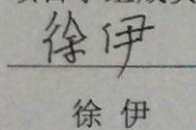 徐伊
徐伊